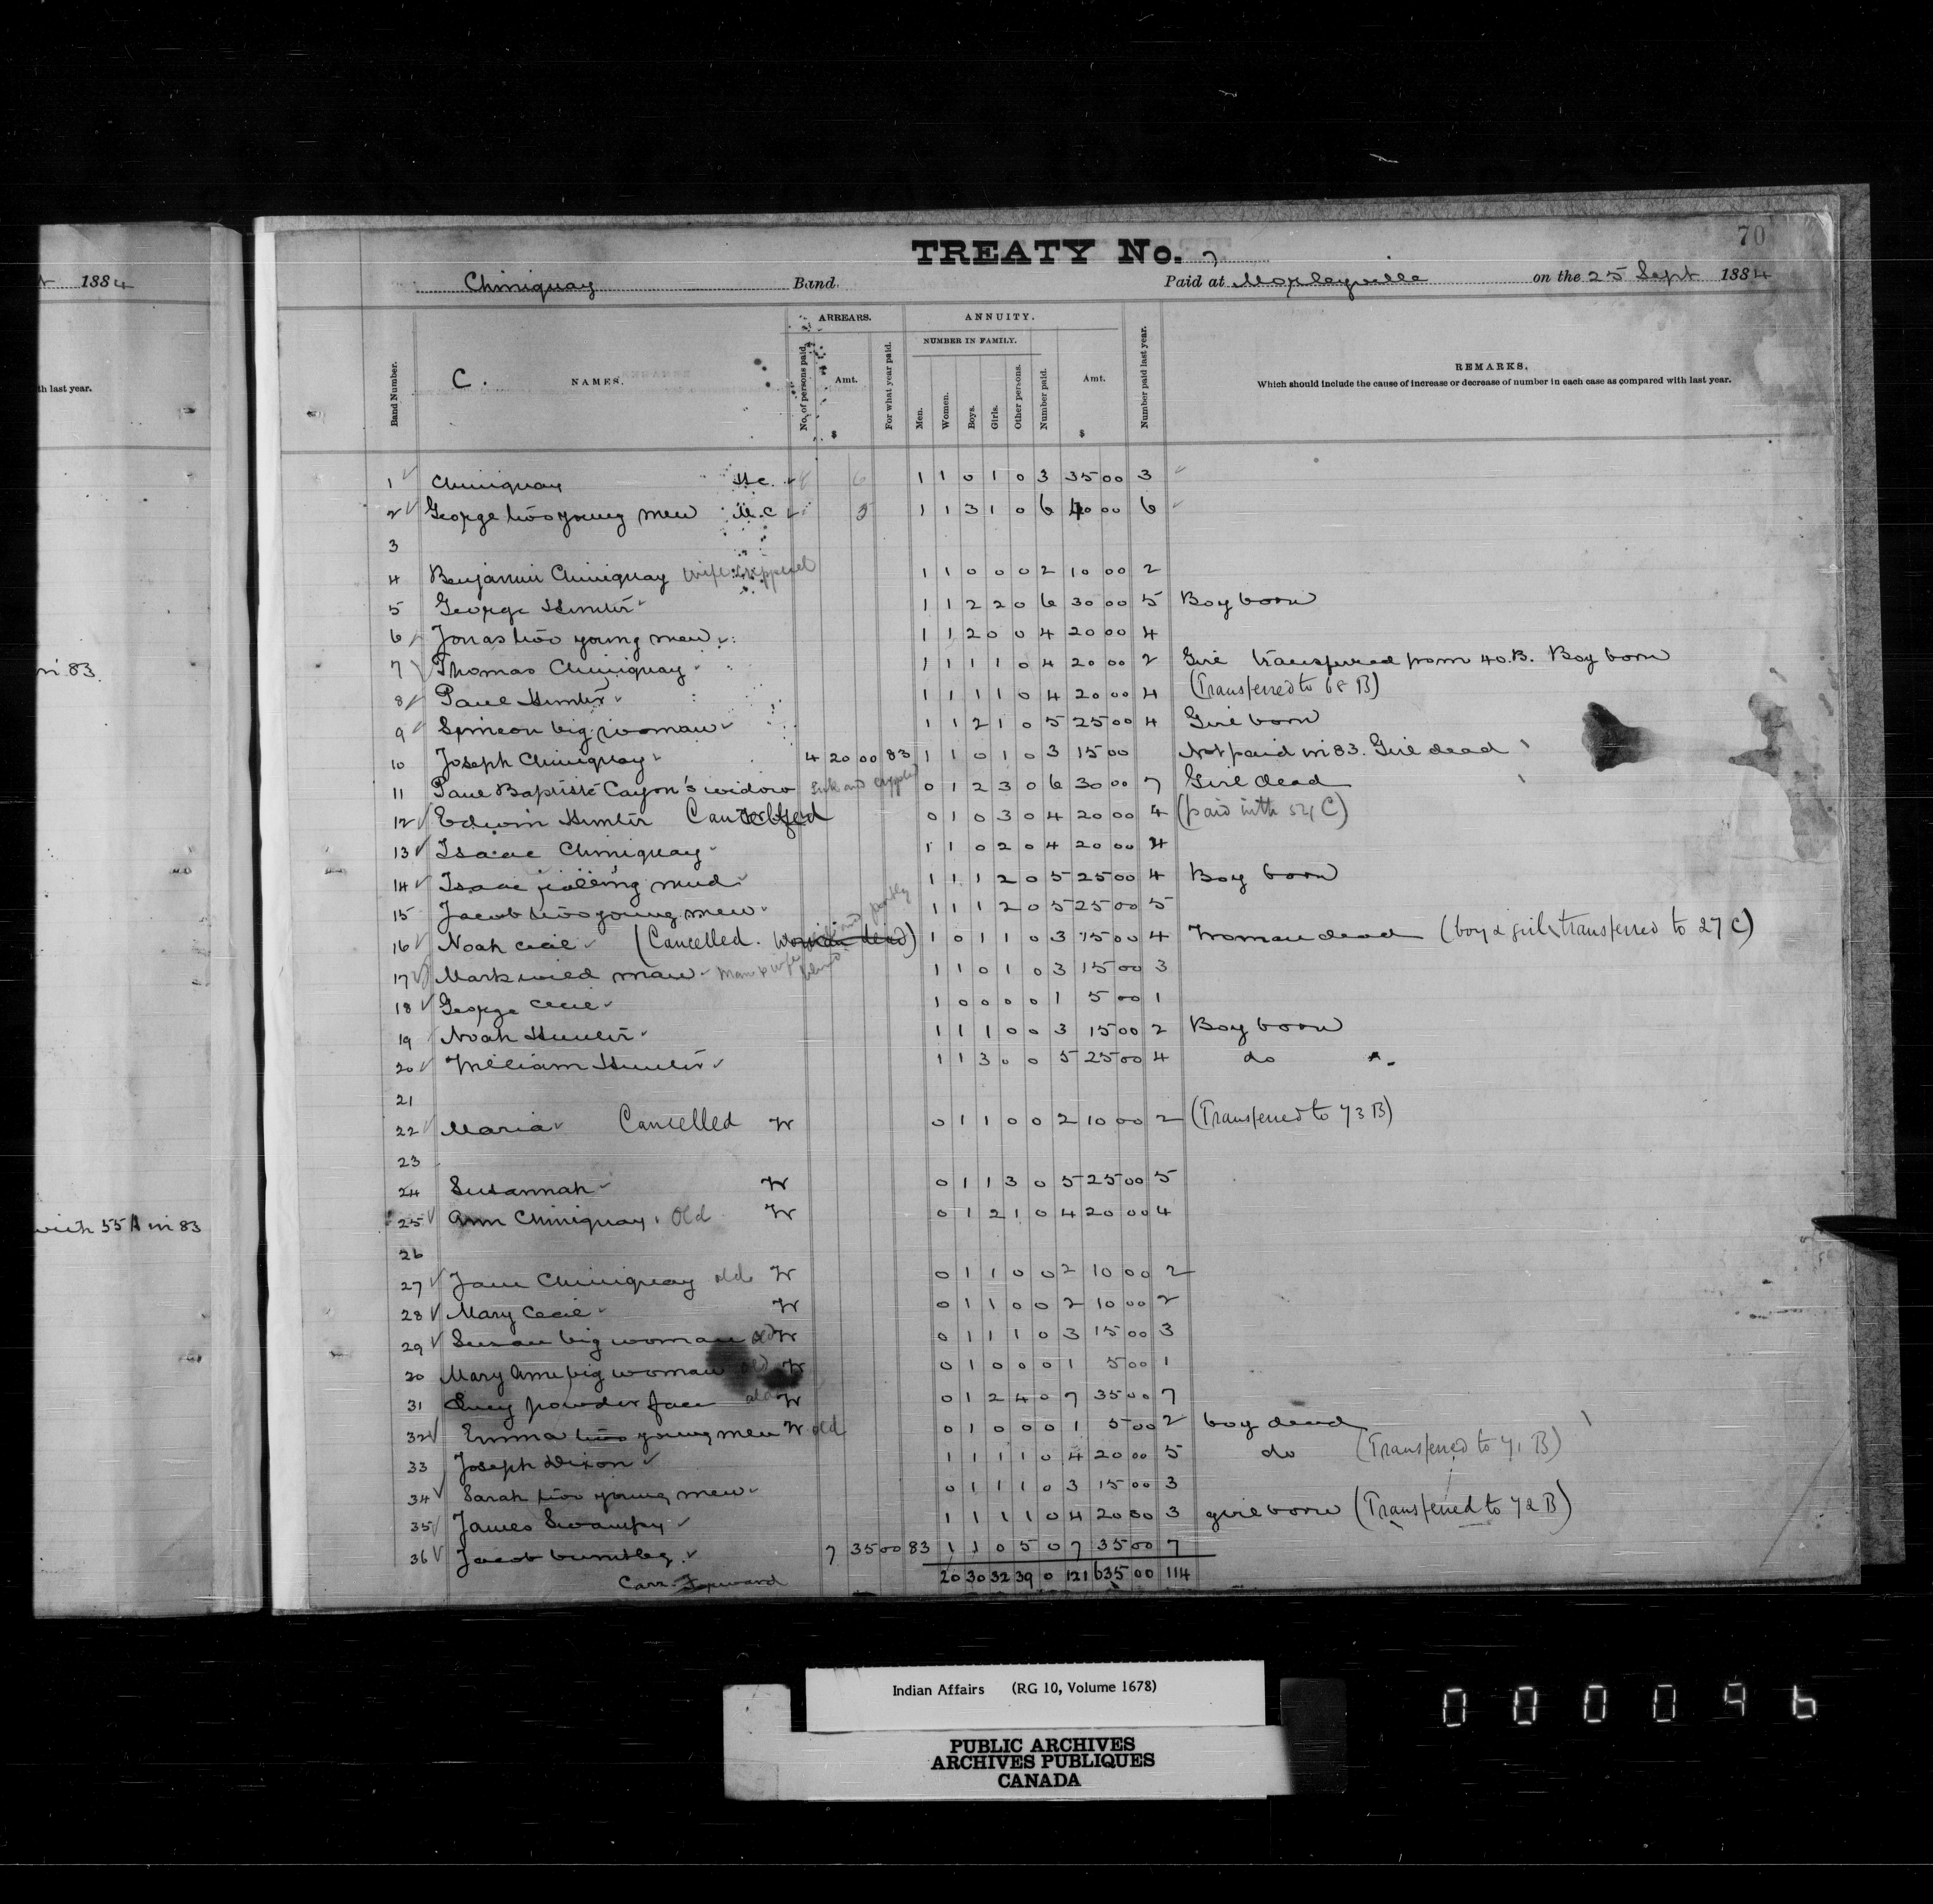 1884
th last year.
in 83.
with 55 A in 83
70
TREATY No. 7
Chiniquay Band. Paid at Morleyville on the 25 Sept 1884
Band Number.
C. NAMES.
ARREARS.
No. of persons paid.
Amt.
$
For what year paid.
ANNUITY.
NUMBER IN FAMILY.
Men.
Women.
Boys.
Girls.
Other persons.
Number paid.
Amt.
$
Number paid last year.
REMARKS.
Which should include the cause of increase or decrease of number in each case as compared with last year.
1 Chiniquay 1 1 0 1 0 3 35 00 3
2 George two young men 1 1 3 1 0 6 40 00 6
3
4 Benjamin Chiniquay wife crippled 1 1 0 0 0 2 10 00 2
5 George Hunter 1 1 2 2 0 6 30 00 5 Boy born
6 Jonas two young men 1 1 2 0 0 4 20 00 4
7 Thomas Chiniquay 1 1 1 1 0 4 20 00 2 Girl transferred from 40.B. Boy born
8 Paul Hunter 1 1 1 1 0 4 20 00 4 (Transferred to 68 B)
9 Simeon big woman 1 1 2 1 0 5 25 00 4 Girl born
10 Joseph Chiniquay 4 20 00 83 1 1 0 1 0 3 15 00 Not paid in 83. Girl dead
11 Paul Baptiste Cayon's widow Sick and crippled 0 1 2 3 0 6 30 00 7 Girl dead
12 Edwin Hunter 0 1 0 3 0 4 20 00 4 (paid with 54 C)
13 Isaac Chiniquay 1 1 0 2 0 4 20 00 4
14 Isaac rolling mud 1 1 1 2 0 5 25 00 4 Boy born
15 Jacob two young men 1 1 1 2 0 5 25 00 5
16 Noah Cecil (Cancelled. Woman dead) 1 0 1 1 0 3 15 00 4 Woman dead (boy & girl transferred to 27 C)
17 Mark wild man Man & wife partly blind 1 1 0 1 0 3 15 00 3
18 George Cecil 1 0 0 0 0 1 5 00 1
19 Noah Hunter 1 1 1 0 0 3 15 00 2 Boy born
20 William Hunter 1 1 3 0 0 5 25 00 4 do
21
22 Maria Cancelled W 0 1 1 0 0 2 10 00 2 (Transferred to 73 B)
23
24 Susannah W 0 1 1 3 0 5 25 00 5
25 Ann Chiniquay. Old W 0 1 2 1 0 4 20 00 4
26
27 Jane Chiniquay old W 0 1 1 0 0 2 10 00 2
28 Mary Cecil W 0 1 1 0 0 2 10 00 2
29 Susan big woman old W 0 1 1 1 0 3 15 00 3
30 Mary Ann big woman old W 0 1 0 0 0 1 5 00 1
31 Lucy powder face old W 0 1 2 4 0 7 35 00 7
32 Emma two young men W old 0 1 0 0 0 1 5 00 2 boy dead
33 Joseph Dixon 1 1 1 1 0 4 20 00 5 do (Transferred to 71 B)
34 Sarah two young men 0 1 1 1 0 3 15 00 3
35 James Swampy 1 1 1 1 0 4 20 00 3 girl born (Transferred to 72 B)
36 Jacob 7 35 00 83 1 1 0 5 0 7 35 00 7
Carr. Forward 20 30 32 39 0 121 635 00 114
Indian Affairs (RG 10, Volume 1678)
PUBLIC ARCHIVES
ARCHIVES PUBLIQUES
CANADA
000096